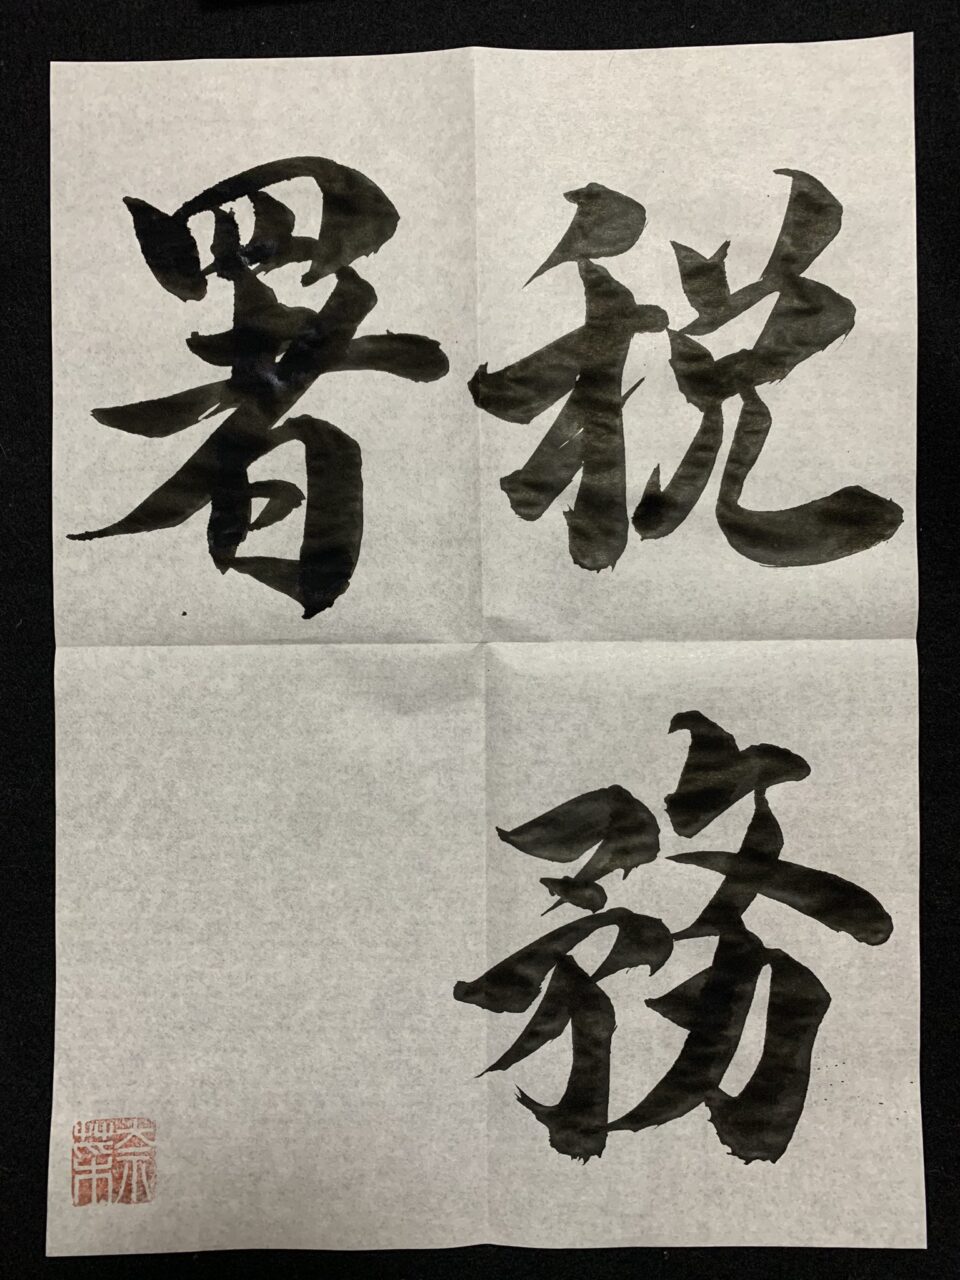 税務
署